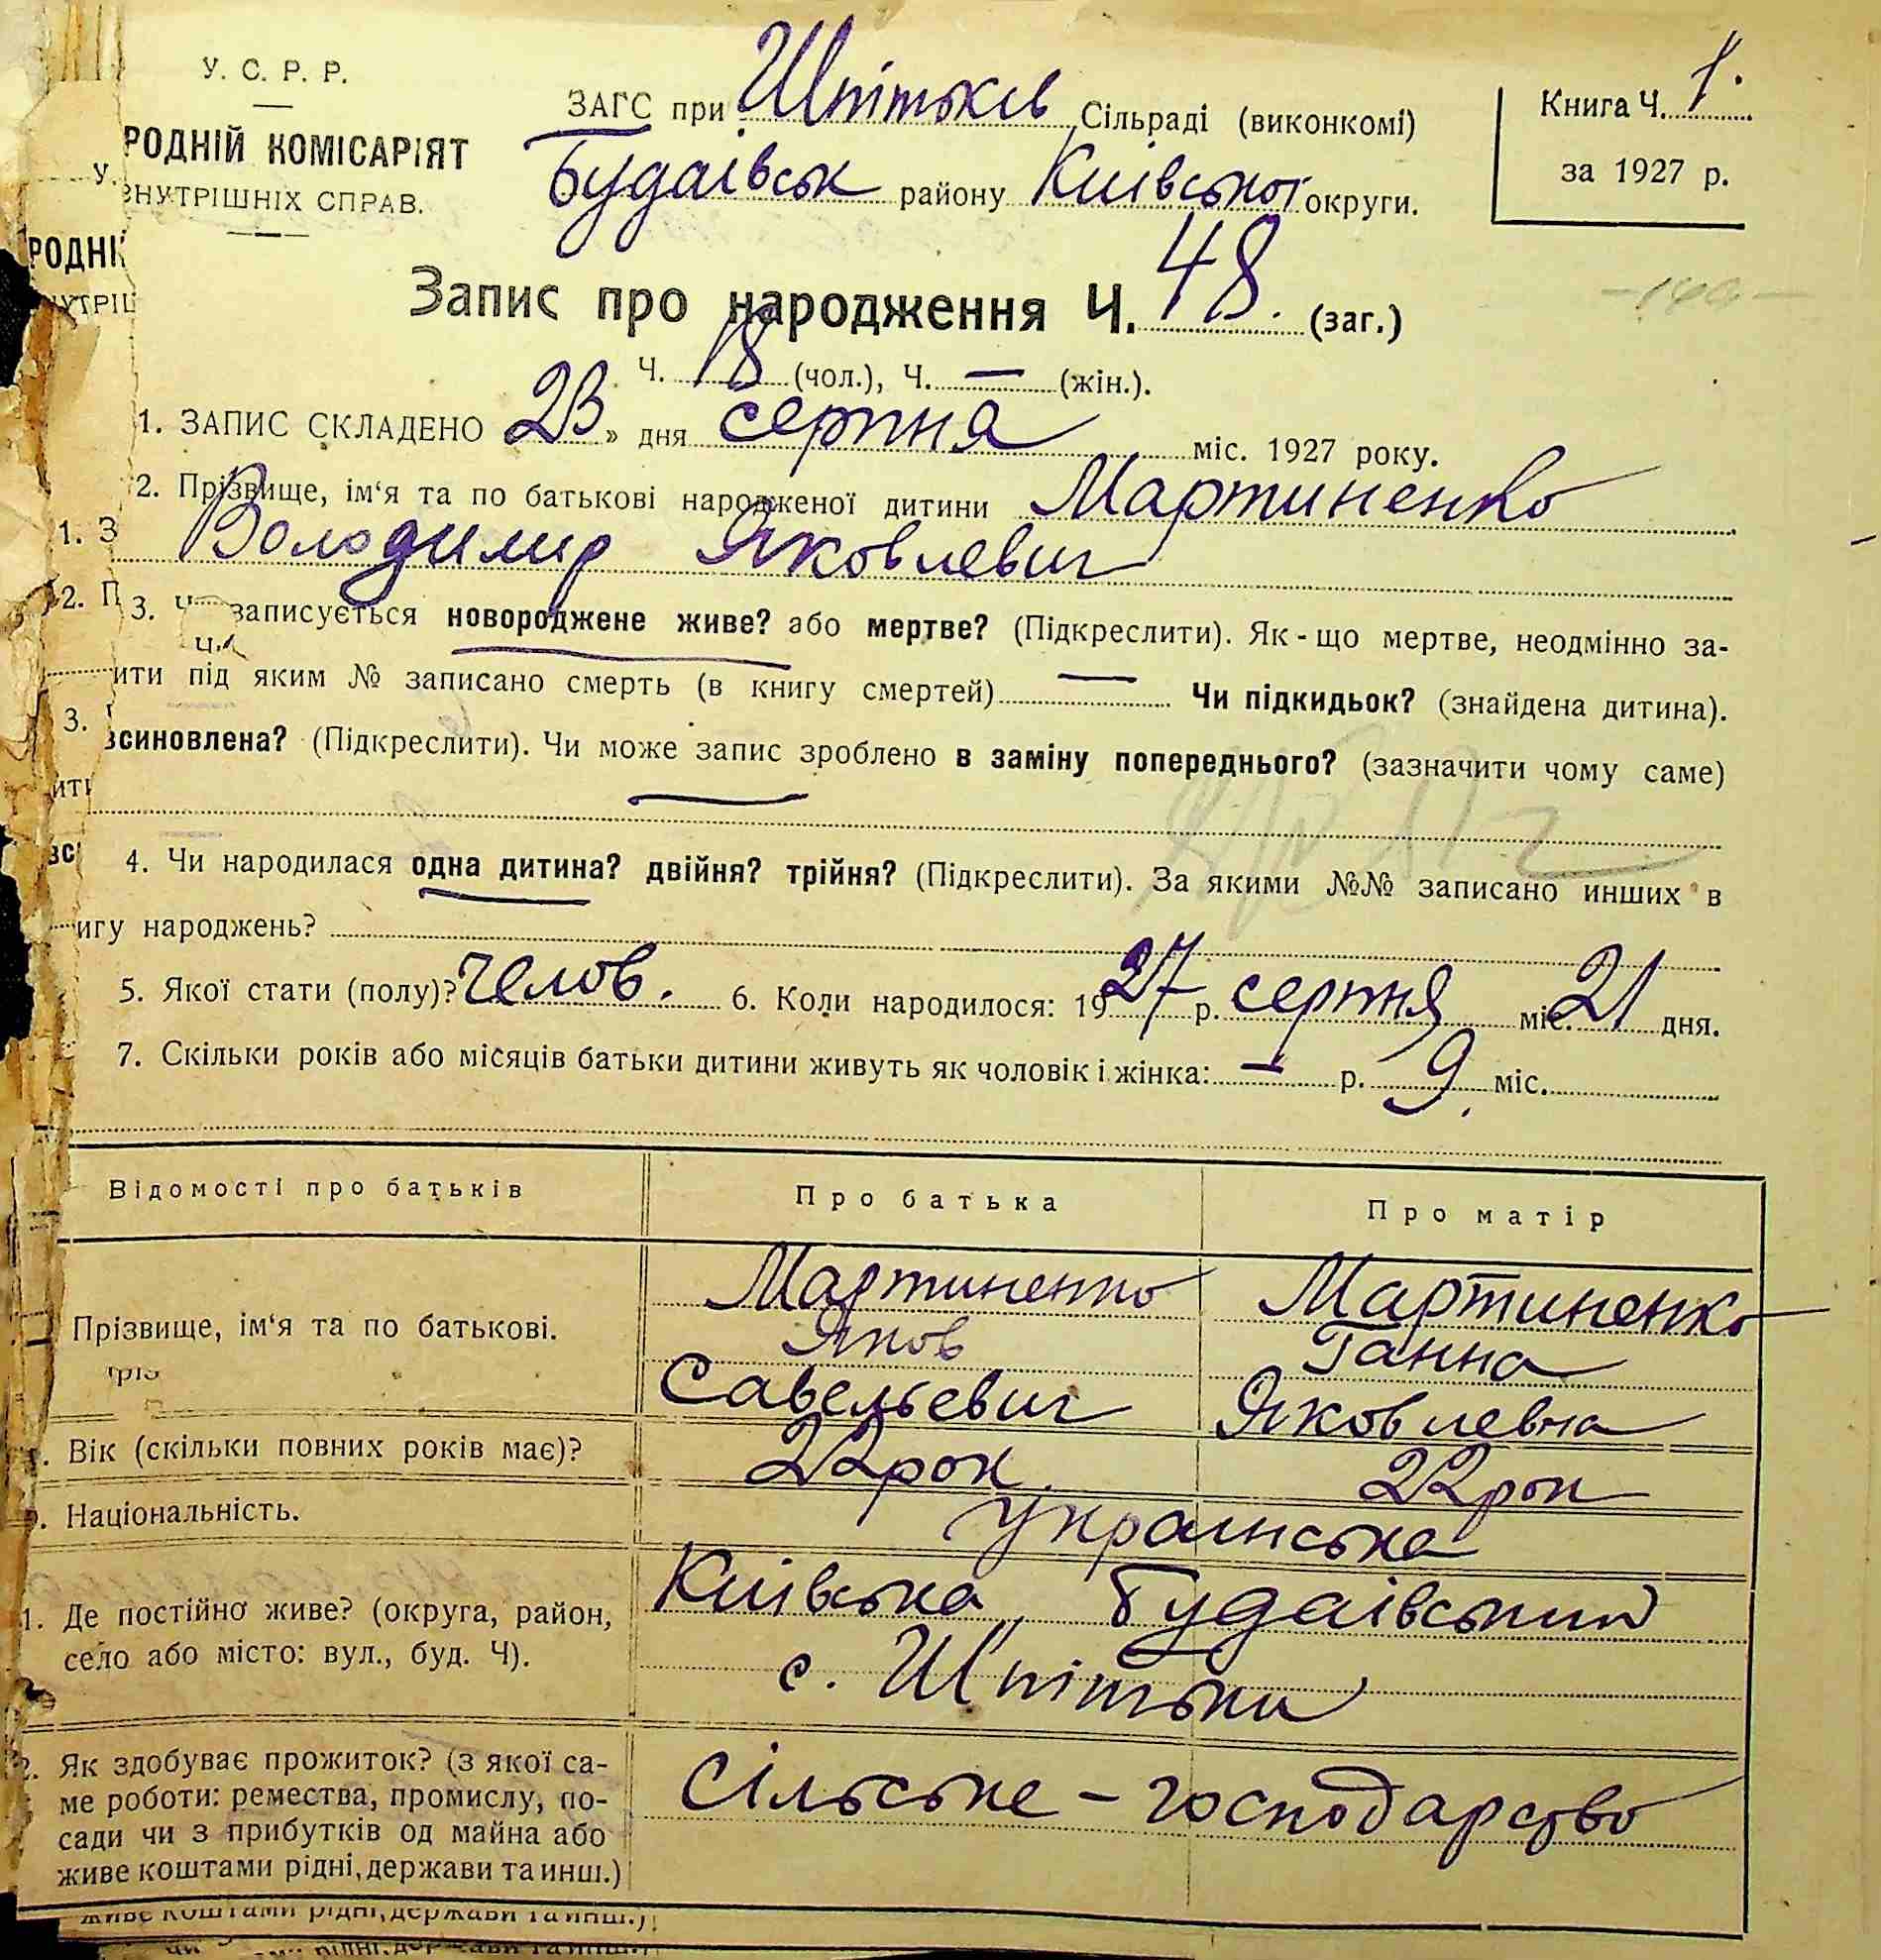 У. С. Р. Р.
РОДНІЙ КОМІСАРІЯТ
ВНУТРІШНІХ СПРАВ.
ЗАГС при Шпітьків Сільраді (виконкомі)
Будаївськ району Київської округи.
Книга Ч. 1.
за 1927 р.
Запис про народження Ч. 48. (заг.)
Ч. 18 (чол.), Ч. — (жін.).
1. ЗАПИС СКЛАДЕНО 23 » дня серпня міс. 1927 року.
2. Прізвище, ім‘я та по батькові народженої дитини Мартиненко
Володимир Яковлевич
3. Ч записується новороджене живе? або мертве? (Підкреслити). Як-що мертве, неодмінно за-
ити під яким № записано смерть (в книгу смертей) — Чи підкидьок? (знайдена дитина).
всиновлена? (Підкреслити). Чи може запис зроблено в заміну попереднього? (зазначити чому саме)
4. Чи народилася одна дитина? двійня? трійня? (Підкреслити). За якими №№ записано инших в
игу народжень?
5. Якої стати (полу)? челов. 6. Коли народилося: 1927 р. серпня міс. 21 дня.
7. Скільки років або місяців батьки дитини живуть як чоловік і жінка: — р. 9 міс.
Відомості про батьків Про батька Про матір
Прізвище, ім‘я та по батькові.
Мартиненко
Яков
Савельевич
Мартиненко
Ганна
Яковлевна
Вік (скільки повних років має)? 22 рок. 22 рок
Національність. українська
1. Де постійно живе? (округа, район,
село або місто: вул., буд. Ч).
Київська, Будаївський
с. Шпітьки
2. Як здобуває прожиток? (з якої са-
ме роботи: ремества, промислу, по-
сади чи з прибутків од майна або
живе коштами рідні, держави та инш.)
Сільське - господарство
живе коштами рідні, держави та инш.)